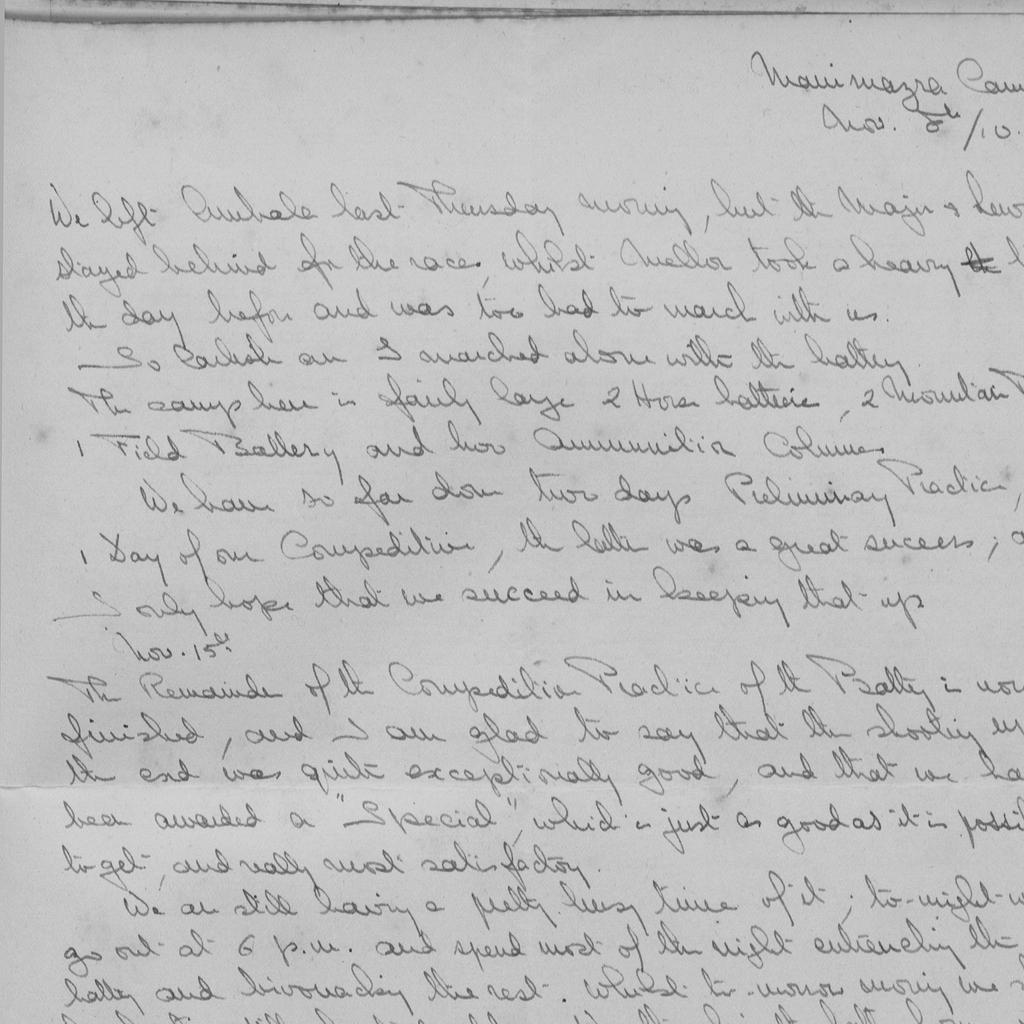 Manimazra Cam
Nov. 8th/10.
We left Umbala last Thursday morning, but the Major &
stayed behind for the races, whilst Mellor took a heavy
the day before and was too bad to march with us.
So Carlisle an I marched alone with the battery.
The camp here is fairly large 2 Horse batteries, 2 Mountain
1 Field Battery and two Ammunition Columns
We have so far done two days Preliminary Practice,
1 Day of our Competitive, the latter was a great success;
I only hope that we succeed in keeping that up
Nov. 15th
The Remainder of the Competition Practice of the Battery is now
finished, and I am glad to say that the shooting
the end was quite exceptionally good, and that we ha
been awarded a "Special", which is just as good as it is possi
to get, and really most satisfactory.
We are still having a pretty busy time of it; to-night
go out at 6 p.m. and spend most of the night entrenching the
battery and bivouacking the rest. Whilst to-morrow morning we